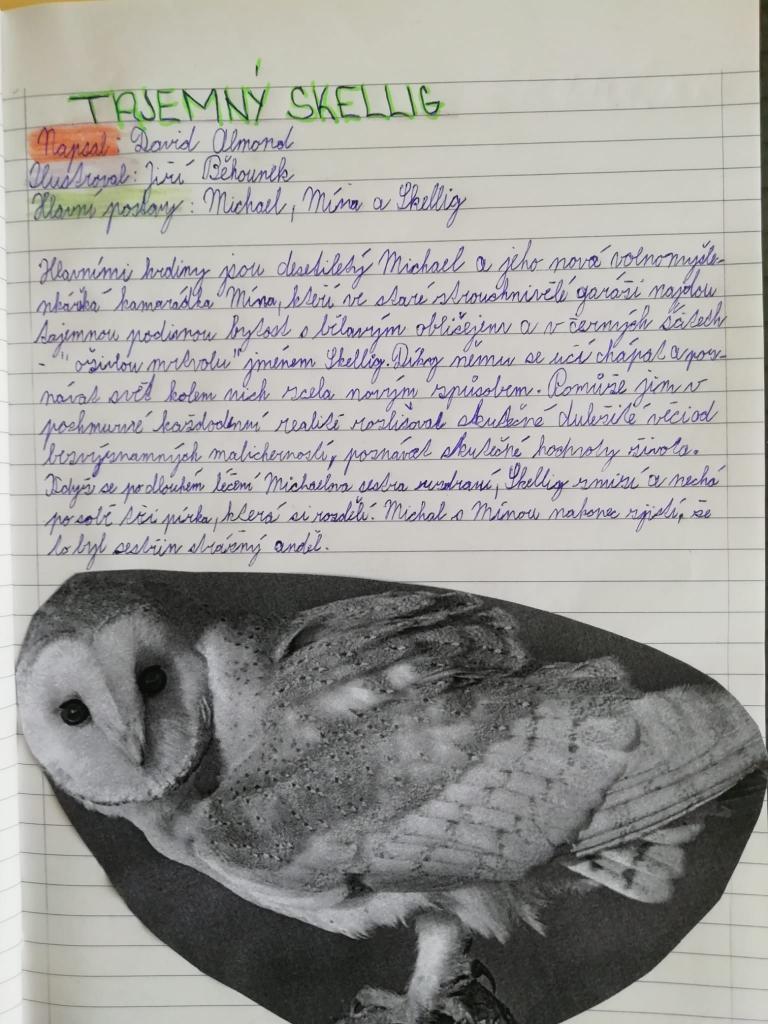 TAJEMNÝ SKELLIG
Napsal: David Almond
Ilustroval: Jiří Běhounek
Hlavní postavy: Michael, Mína a Skellig
Hlavními hrdiny jsou desetiletý Michael a jeho nová volnomyšle-
nkářská kamarádka Mína, kteří ve staré ztrouchnivělé garáži najdou
tajemnou podivnou bytost s bělavým obličejem a v černých šatech
- "oživlou mrtvolu" jménem Skellig. Díky němu se učí chápat a poz-
návat svět kolem nich zcela novým způsobem. Pomůže jim v
pochmurné každodenní realitě rozlišovat skutečně důležité věci od
bezvýznamných malicherností, poznávat skutečné hodnoty života.
Když se po dlouhém léčení Michaelova sestra uzdraví, Skellig zmizí a nechá
po sobě tři pírka, která si rozdělí. Michal s Mínou nakonec zjistí, že
to byl sestřin strážný anděl.